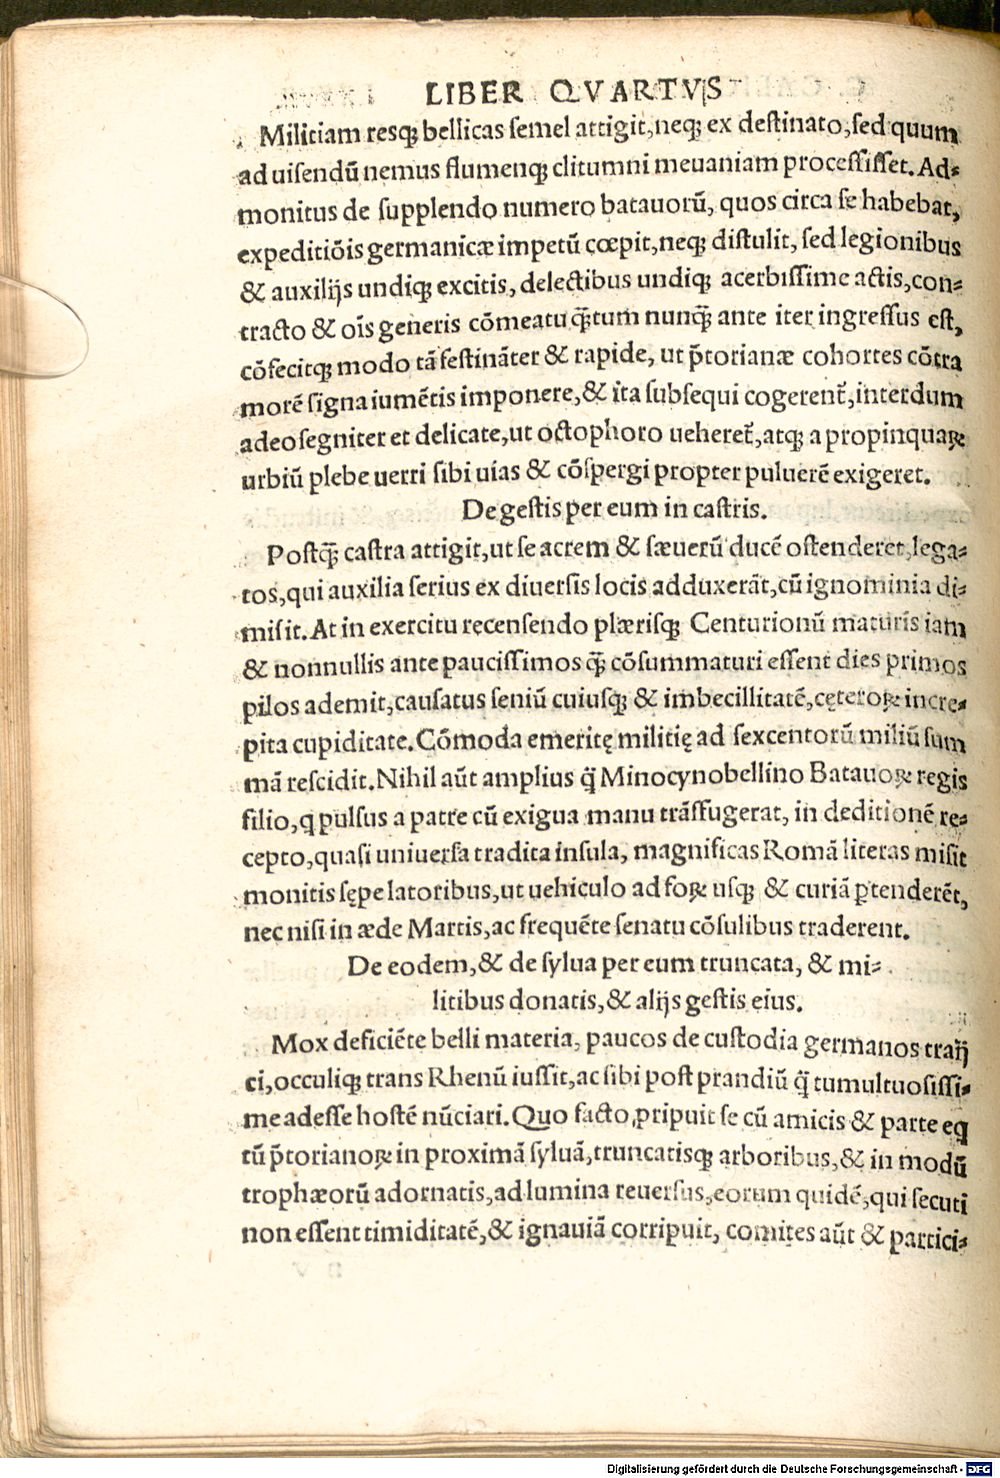 LIBER QVARTVS
Militiam resq; bellicas semel attigit, neq; ex destinato, sed quum
ad uisendũ nemus flumenq; clitumni meuaniam processisset. Ad-
monitus de supplendo numero batauorũ, quos circa se habebat,
expeditiõis germanicæ impetũ cœpit, neq; distulit, sed legionibus
& auxilijs undiq; excitis, delectibus undiq; acerbissime actis, con-
tracto & oĩs generis cõmeatu q̃tum nunq̃ ante iter ingressus est,
cõfecitq; modo tã festinãter & rapide, ut p̃torianæ cohortes cõtra
morẽ signa iumẽtis imponere, & ita subsequi cogerent᷑, interdum
adeo segniter et delicate, ut octophoro ueheret᷑, atq; a propinquaꝝ
urbiũ plebe uerri sibi uias & cõspergi propter puluerẽ exigeret.
De gestis per eum in castris.
Postq̃ castra attigit, ut se acrem & sæuerũ ducẽ ostenderet, lega-
tos, qui auxilia serius ex diuersis locis adduxerãt, cũ ignominia di-
misit. At in exercitu recensendo plærisq; Centurionũ maturis iam
& nonnullis ante paucissimos q̃ cõsummaturi essent dies primos
pilos ademit, causatus seniũ cuiusq; & imbecillitatẽ, cęteroꝝ incre-
pita cupiditate. Cõmoda emeritę militię ad sexcentorũ miliũ sum
mã rescidit. Nihil aũt amplius q̃ Minocynobellino Batauoꝝ regis
filio, q pulsus a patre cũ exigua manu trãsfugerat, in deditionẽ re-
cepto, quasi uniuersa tradita insula, magnificas Romã literas misit
monitis sępe latoribus, ut uehiculo ad foꝝ usq; & curiã ꝑtenderẽt,
nec nisi in æde Martis, ac frequẽte senatu cõsulibus traderent.
De eodem, & de sylua per eum truncata, & mi-
litibus donatis, & alijs gestis eius.
Mox deficiẽte belli materia, paucos de custodia germanos traij
ci, occuliq; trans Rhenũ iussit, ac sibi post prandiũ q̃ tumultuosissi-
me adesse hostẽ nũciari. Quo facto, ꝓripuit se cũ amicis & parte eq
tũ p̃torianoꝝ in proximã syluã, truncatisq; arboribus, & in modũ
trophæorũ adornatis, ad lumina reuersus, eorum quidẽ, qui secuti
non essent timiditatẽ, & ignauiã corripuit, comites aũt & partici-
Digitalisierung gefördert durch die Deutsche Forschungsgemeinschaft - DFG